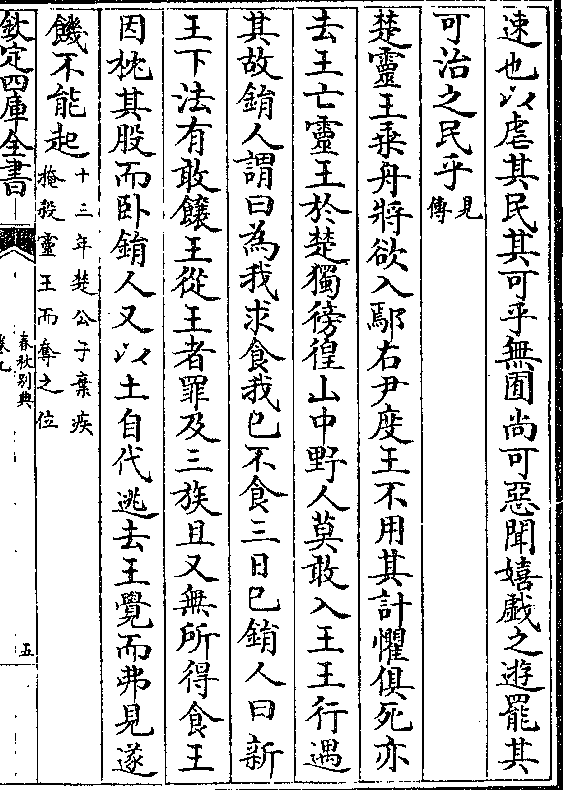 速也以虐其民其可乎無囿尚可惡聞嬉戲之遊罷其
可治之民乎見傳
楚靈王乗舟將欲入鄢右尹度王不用其計懼俱死亦
去王亡靈王於楚獨徬徨山中野人莫敢入王王行遇
其故鋗人謂曰為我求食我已不食三日已鋗人曰新
王下法有敢饟王從王者罪及三族且又無所得食王
因枕其股而卧鋗人又以土自代逃去王覺而弗見遂
饑不能起十三年楚公子棄疾掩殺靈王而奪之位
欽定四庫全書
春秋别典
卷九
五